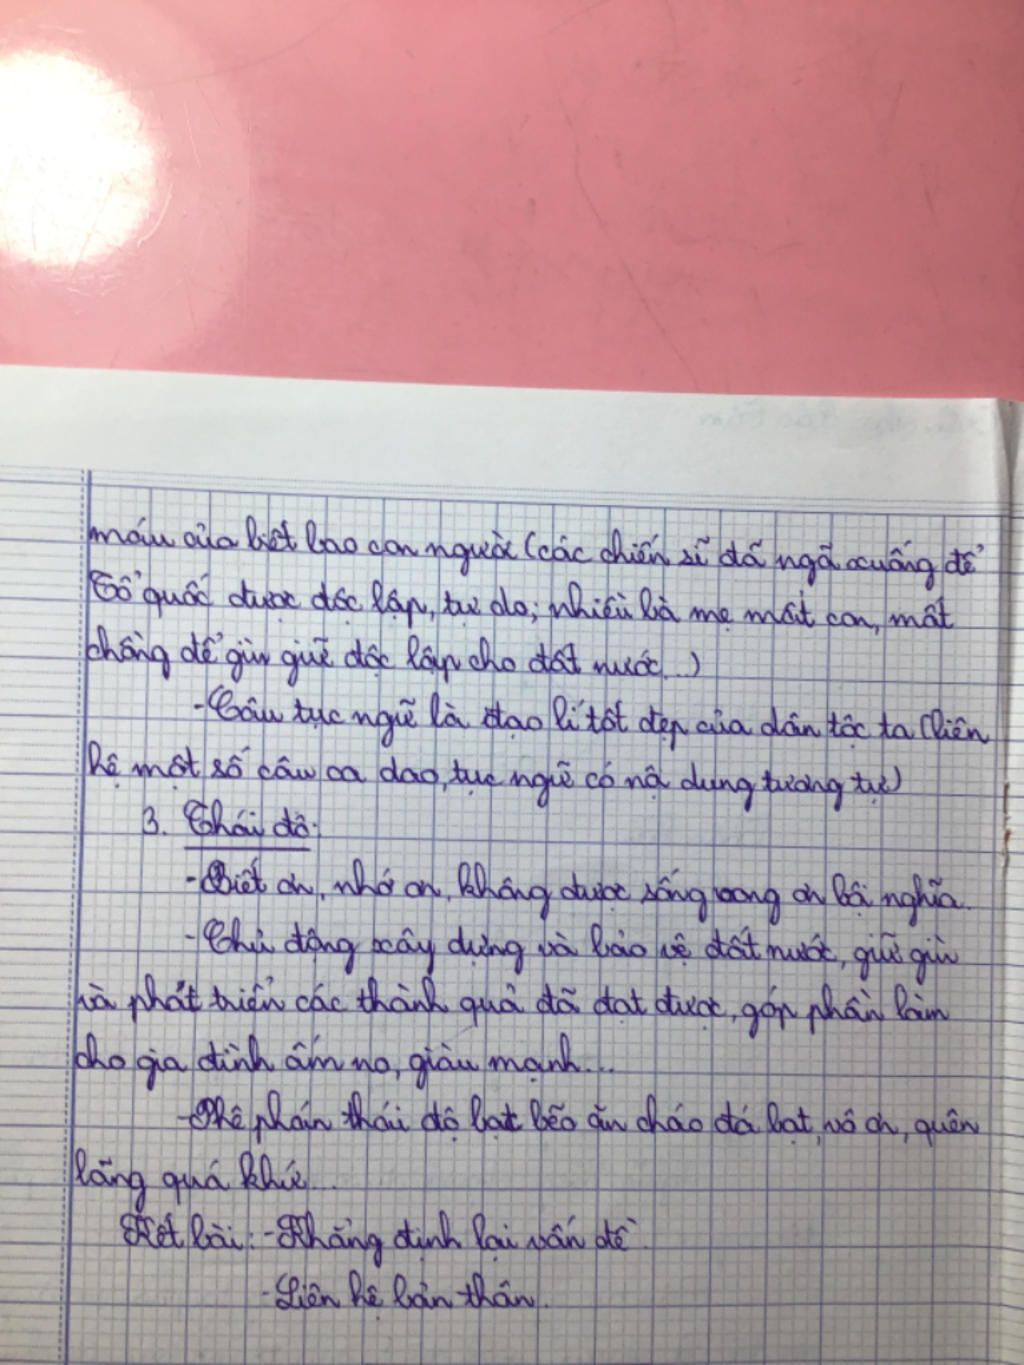 máu của biết bao con người (các chiến sĩ đã ngã xuống để
Tổ quốc được độc lập, tự do; nhiều bà mẹ mất con, mất
chồng để gìn giữ độc lập cho đất nước...)
-Câu tục ngữ là đạo lí tốt đẹp của dân tộc ta (liên
hệ một số câu ca dao, tục ngữ có nộ dung tương tự)
3. Thái độ:
-Biết ơn, nhớ ơn, không được sống vong ơn bội nghĩa.
-Chủ động xây dựng và bảo vệ đất nước, giữ gìn
và phát triển các thành quả đã đạt được, góp phần làm
cho gia đình ấm no, giàu mạnh...
-Phê phán thái độ bạt bẽo ăn cháo đá bạt, vô ơn, quên
lãng quá khứ...
Kết bài: -Khẳng định lại vấn đề.
-Liên hệ bản thân.